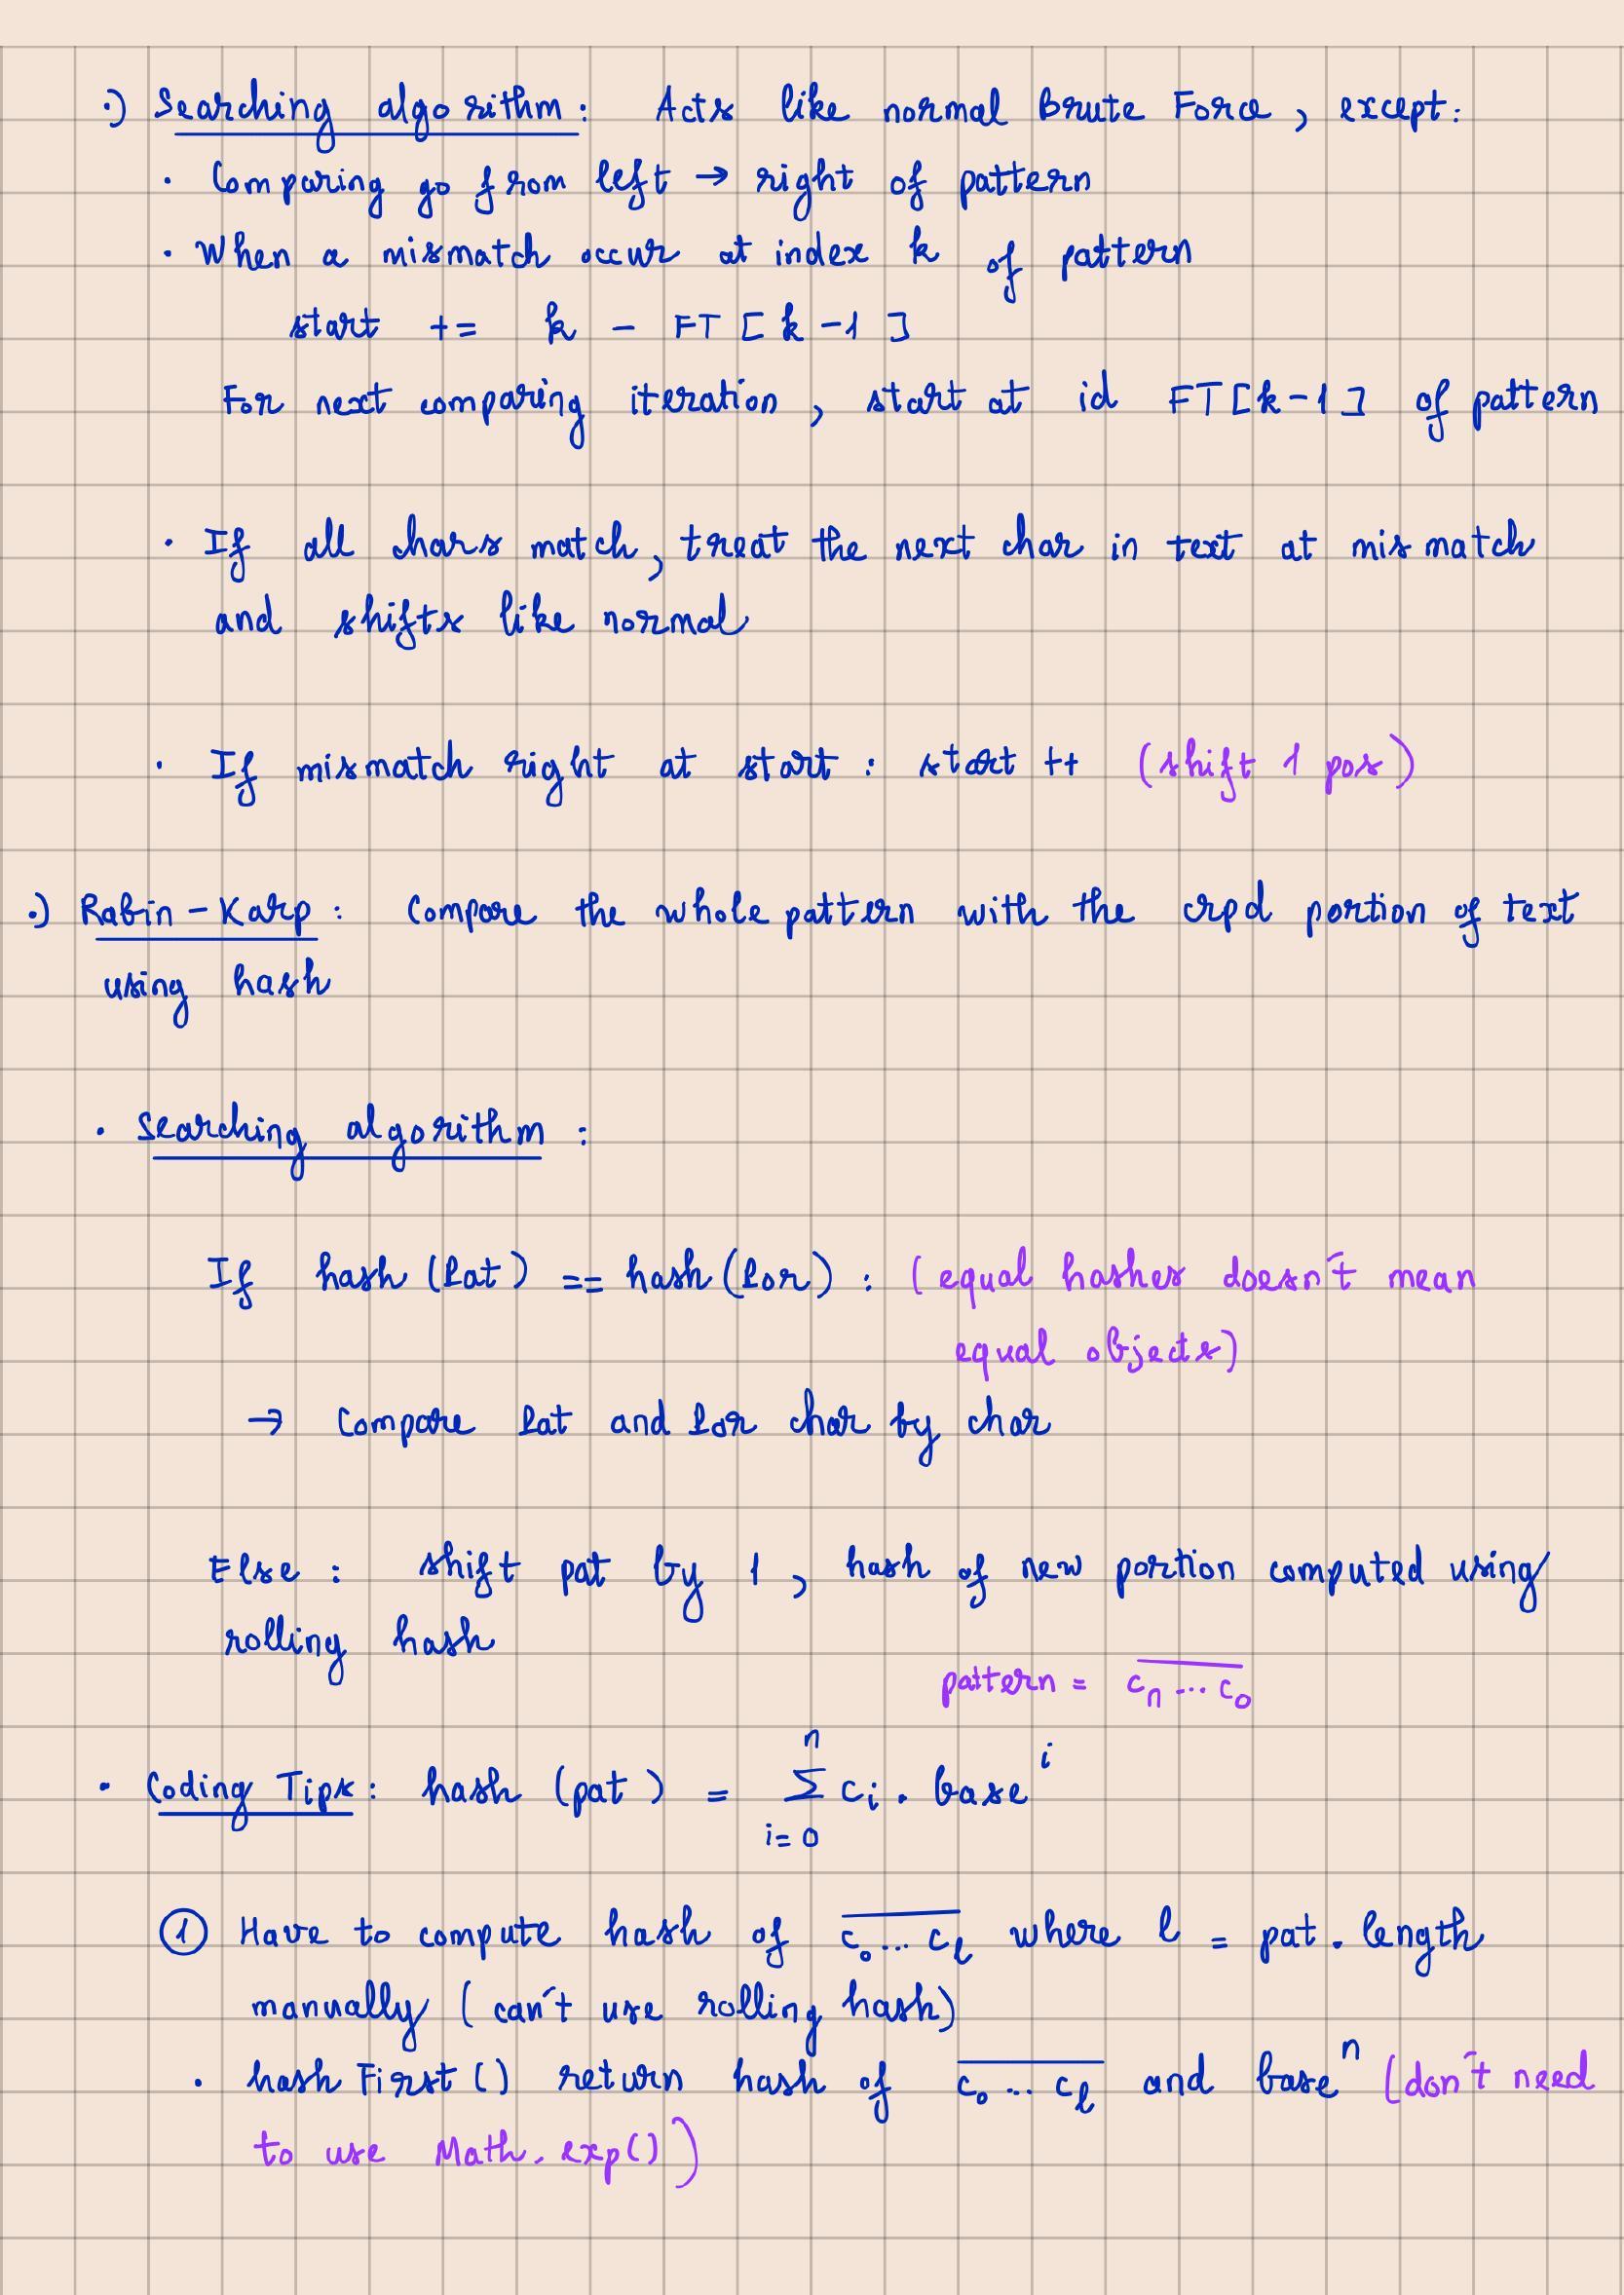 ·) Searching algorithm: Acts like normal Brute Force, except:
· Comparing go from left → right of pattern
· When a mismatch occur at index k of pattern
start += k - FT[k-1]
For next comparing iteration, start at id FT[k-1] of pattern
· If all chars match, treat the next char in text at mismatch
and shifts like normal
· If mismatch right at start: start ++ (shift 1 pos)
·) Rabin-Karp: Compare the whole pattern with the crpd portion of text
using hash
· Searching algorithm:
If hash(Pat) == hash(Por): (equal hashes doesn't mean
equal objects)
→ Compare Pat and Por char by char
Else: shift pat by 1, hash of new portion computed using
rolling hash
pattern = \overline{c_n ... c_0}
· Coding Tips: hash (pat) = \sum_{i=0}^{n} c_i . base^i
① Have to compute hash of \overline{c_0 ... c_l} where l = pat.length
manually (can't use rolling hash)
· hashFirst() return hash of \overline{c_0 ... c_l} and base^n (don't need
to use Math.exp())